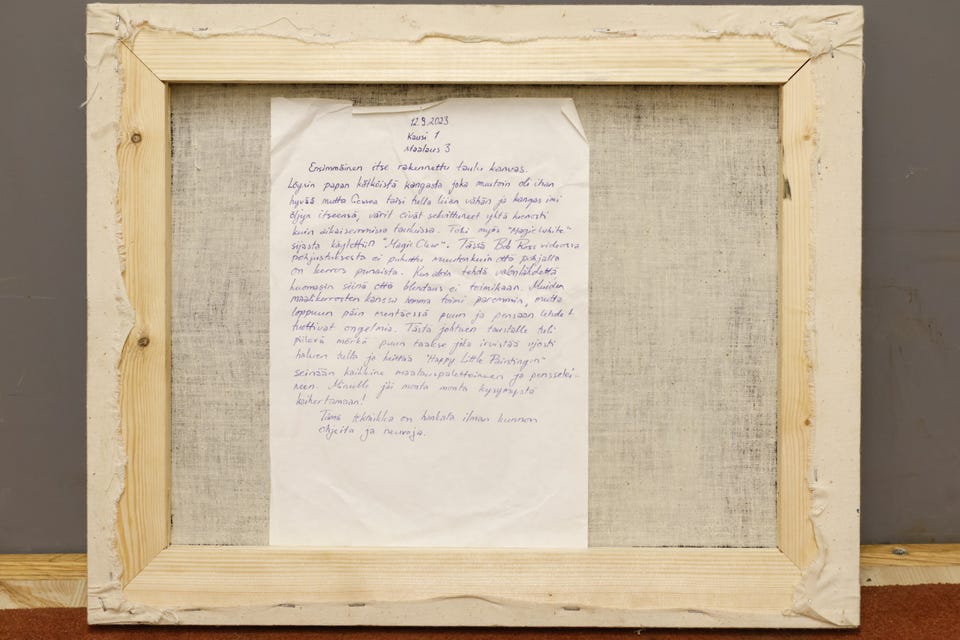 12.9.2023
Kausi 1
Maalaus 3
Ensimmäinen itse rakennettu taulu kanvas.
Löysin papan kätköistä kangasta joka muutoin oli ihan
hyvää mutta Gessoa taisi tulla liian vähän ja kangas imi
öljyn itseensä, värit eivät sekoittuneet yhtä hienosti
kuin aikaisemmissa tauluissa. Toki myös "Magic White"
sijasta käytettiin "Magic Clear". Tässä Bob Ross videossa
pohjustuksesta ei puhuttu muutenkuin että pohjalla
on kerros punaista. Kun aloin tehdä valonlähdettä
huomasin siinä että blendaus ei toimikaan. Muiden
maalikerrosten kanssa homma toimi paremmin, mutta
loppuun päin mentäessä puun ja pensaan lehdet
tuottivat ongelmia. Tästä johtuen taustalle tuli
piilevä mörkö puun taakse joka irvistää ujosti
haluen tulla ja heittää "Happy Little Paintingin"
seinään kaikkine maalauspaletteineen ja pensselei-
neen. Minulle jäi monta monta kysymystä
kaihertamaan!
Tämä tekniikka on hankala ilman kunnon
ohjeita ja neuvoja.